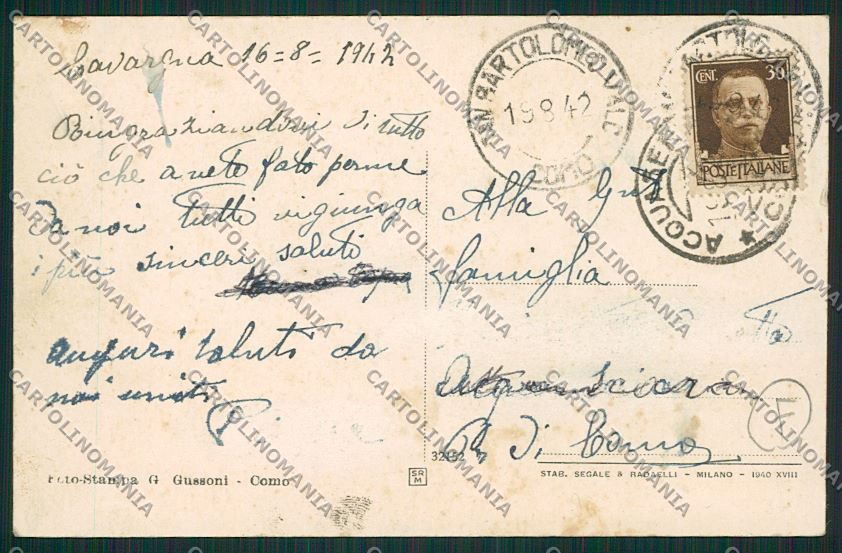 Cavargna 16=8=1942
Ringraziandovi di tutto
ciò che avete fato perme
Da noi tutti vi giunga
i più sinceri saluti
auguri saluti da
noi uniti
Foto-Stampa G Gussoni - Como
32152
SRM
SAN BARTOLOMEO VALE
19 8 42
COMO
CENT. 30
POSTE ITALIANE
ACQUA
Alla Gnt
famiglia
Di Como
STAB. SEGALE & RADAELLI - MILANO - 1940 XVIII
CARTOLINOMANIA